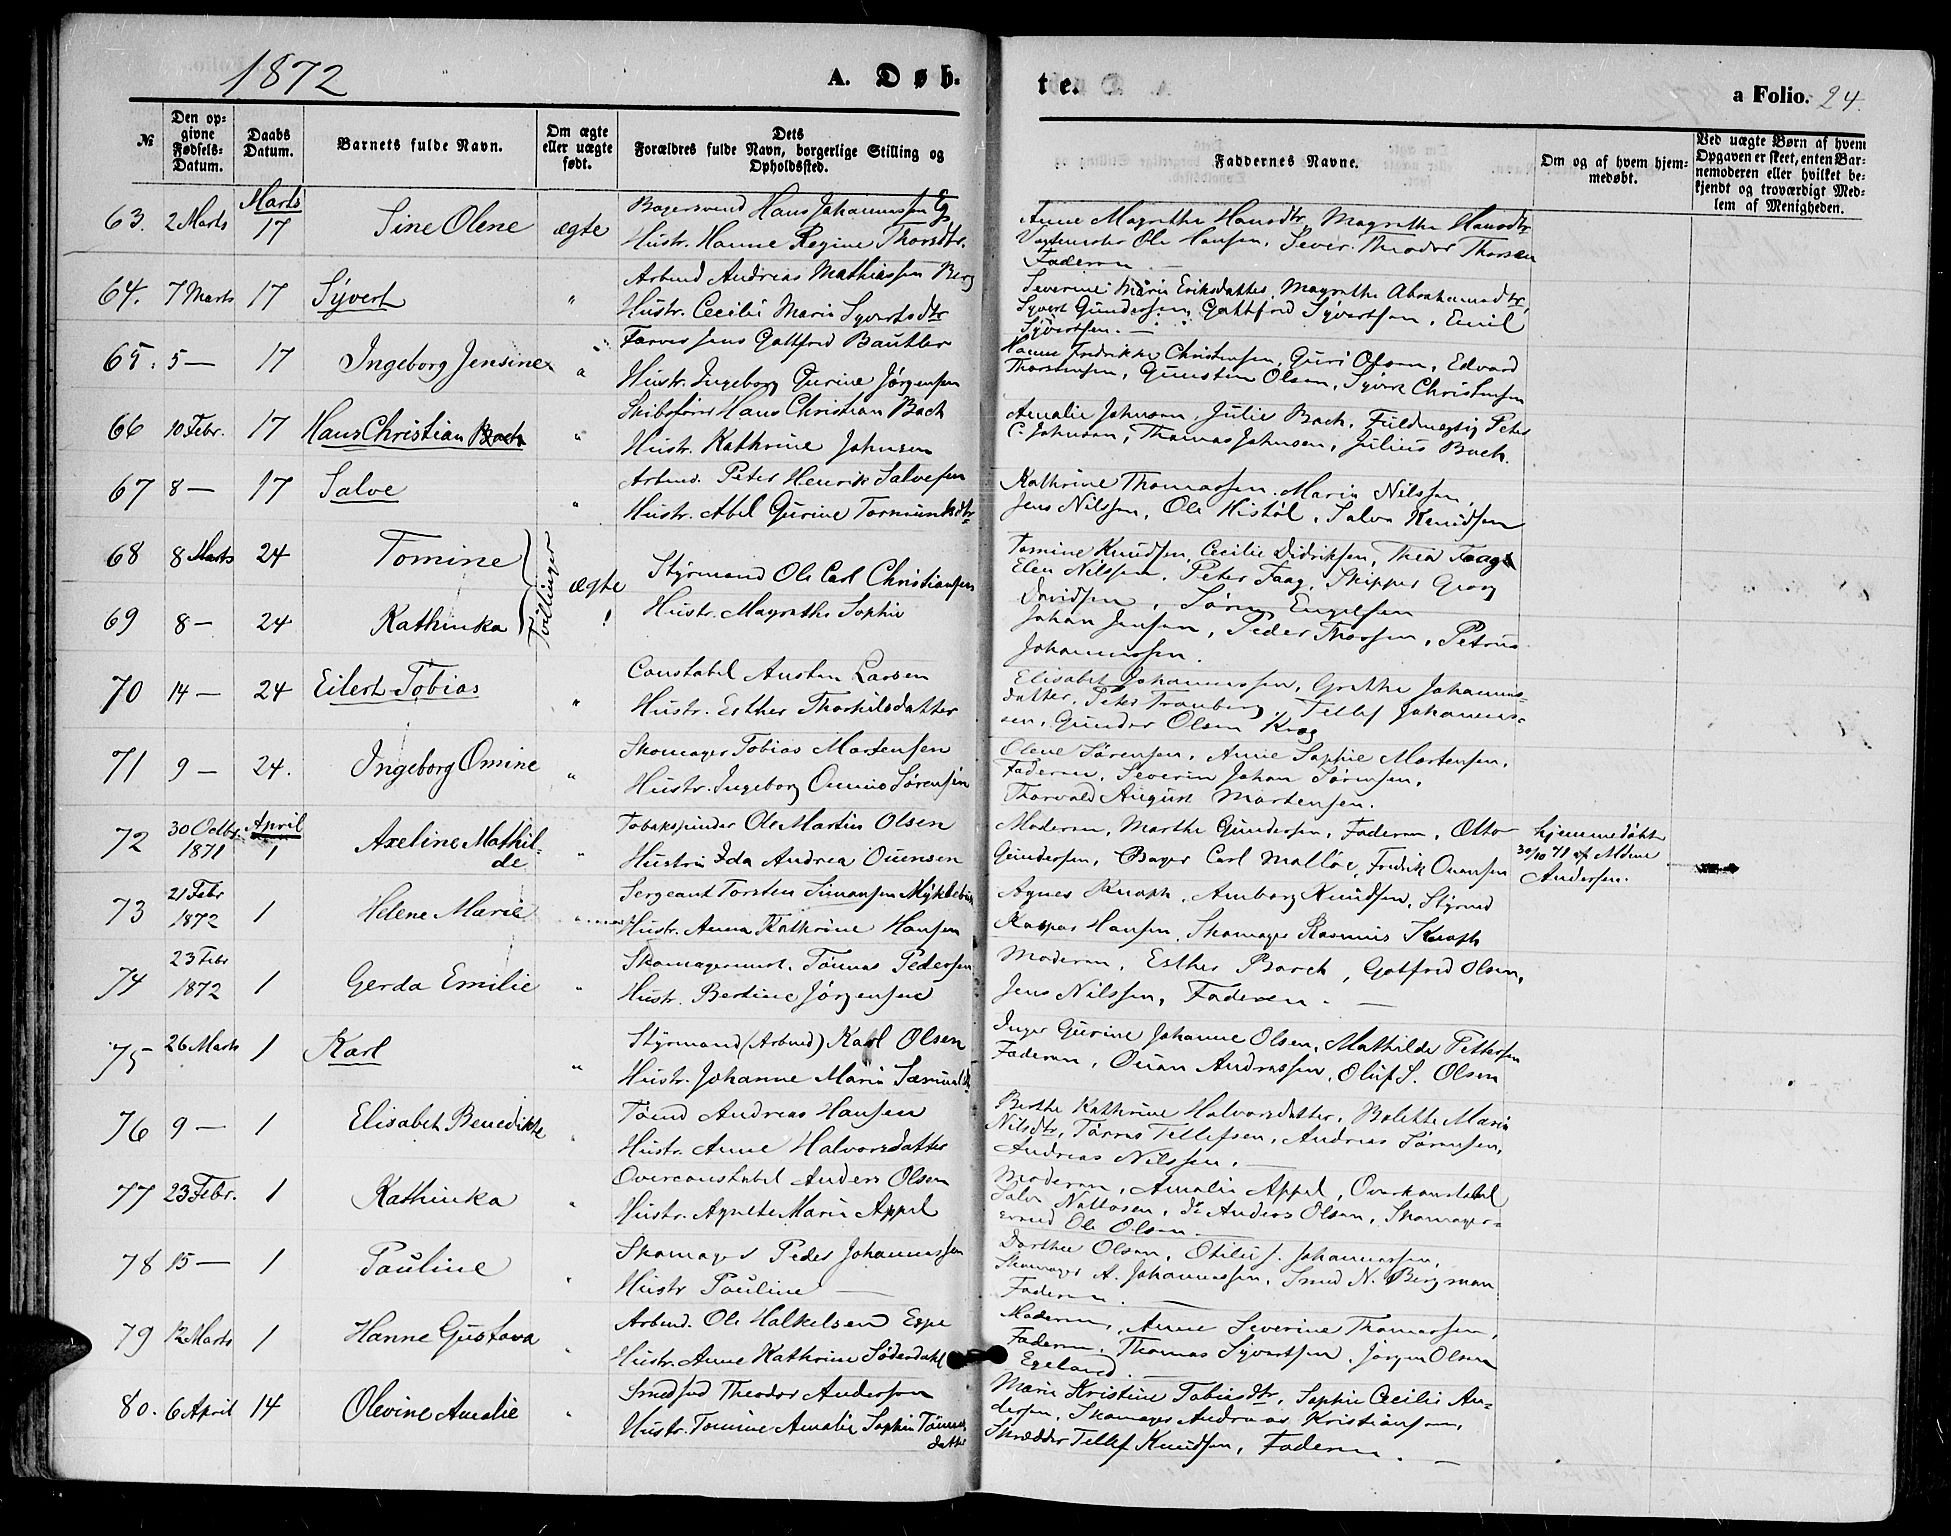 1872
A. Døb-
te.
a Folio. 24.
№
Den op-
givne
Fødsels-
Datum.
Daabs
Datum.
Barnets fulde Navn.
Om ægte
eller uægte
født.
Dets
Forældres fulde Navn, borgerlige Stilling og
Opholdssted.
Faddernes Navne.
Om og af hvem hjem-
medøbt.
Ved uægte Børn af hvem
Opgaven er skeet, enten Bar-
nemoderen eller hvilket be-
kjendt og troværdigt Med-
lem af Menigheden.
63. 2 Marts Marts 17 Sine Olene ægte
Bagersvend Hans Johannessen
Hustr. Hanne Regine Thorsdtr.
Anne Magrethe Hansdtr, Magrethe Hansdtr
Ole Hansen, Theodor Thorsen
Faderen
64. 7 Marts 17 Syvert "
Arbmd Andreas Mathiassen Berg
Hustr. Cecilie Marie Syvertsdtr
Severine Marie Eriksdatter, Magrethe Abrahamsdtr,
Syvert Gundersen, Gottfred Syvertsen, Emil
Syvertsen.
65. 5 — 17 Ingeborg Jensine "
Farver Jens Gottfred Bautler
Hustr. Ingeborg Gurine Jørgensen
Hanne Fredrikke Christensen, Guri Olsen, Edvard
Thorstensen, Gunsten Olsen, Syvert Christensen
66 10 Febr. 17 Hans Christian Bach "
Skibsfører Hans Christian Bach
Hustr. Kathrine Johnsen
Amalie Johnsen, Julie Bach, Fuldmegtig Peter
C. Johnsen, Thomas Johnsen, Julius Bach.
67 8 — 17 Salve "
Arbmd. Peter Henrik Salvesen
Hustr. Abel Gurine Tormundsdtr
Kathrine Thomassen, Marie Nilssen,
Jens Nilssen, Ole Histøl, Salve Knudsen
68 8 Marts 24 Tomine
69 8 — 24 Kathinka
Tvillinger
ægte
Styrmand Ole Carl Christiansen
Hustr. Magrethe Sophie
Tomine Knudsen, Cecilie Didriksen, Thea Faag
Elen Nilssen, Peter Faag, Skipper Georg
Davidsen, Søren Engelsen
Johan Jensen, Peder Thorsen, Petrus
Johannessen.
70 14 — 24 Eilert Tobias "
Constabel Austen Larsen
Hustr. Esther Thorkilsdatter
Elisabet Johannessen, Grethe Johannes-
datter, Peter Tranberg, Tellef Johannes-
sen, Gunder Olsen Krog
71 9 — 24. Ingeborg Omine "
Skomager Tobias Mortensen
Hustr. Ingeborg Omine Sørensen
Olene Sørensen, Anne Sophie Mortensen,
Faderen, Severin Johan Sørensen,
Thorvald August Mortensen.
72 30 Octbr. 1871 April 1 Axeline Mathil-
de "
Tobakspinder Ole Martin Olsen
Hustru Ida Andrea Ouensen
Moderen, Marthe Gundersen, Faderen, Otto
Gundersen, Bager Carl Malløe, Fredrik Ouensen
hjemmedøbt
30/10 71 af Mdme
Andersen.
73 21 Febr 1872 1 Helene Marie "
Sergeant Torsten Simonsen Myklebu
Hustr. Anna Kathrine Hansen
Agnes Knoph, Amborg Knudsen, Styrmd
Kaspar Hansen, Skomager Rasmus Knoph
74 23 Febr 1872 1 Gerda Emilie "
Skomagermest. Tønnes Pedersen
Hustr. Bertine Jørgensen
Moderen, Esther Borch, Gotfred Olsen,
Jens Nilssen, Faderen.
75 26 Marts 1 Karl "
Styrmand (Arbmd) Karl Olsen
Hustr. Johanne Marie Samuelsd
Inger Gurine Johanne Olsen, Mathilde Pettersen
Faderen, Ouen Andreassen, Oluf S. Olsen
76 9 — 1 Elisabet Benedikte "
Tømd Andreas Hansen
Hustr. Anne Halvorsdatter
Berthe Kathrine Halvorsdatter, Bolette Marie
Nilsdtr, Tørres Tellefsen, Andreas Sørensen,
Andreas Nilssen.
77 23 Febr. 1 Kathinka "
Overconstabel Anders Olsen
Hustr. Agnethe Marie Appel
Moderen, Amalie Appel, Overkonstabel
Salve Nattosen, do Anders Olsen, Skomager-
svend Ole Olsen.
78 15 — 1 Pauline "
Skomager Peder Johannessen
Hustr Pauline —
Dorthea Olsen, Otilie J. Johannessen,
Skomager A. Johannessen, Smed N. Bergman
Faderen.
79 12 Marts 1 Hanne Gustava "
Arbmd. Ole Halkelsen Espe
Hustr. Anne Kathrine Søderdahl
Moderen, Anne Severine Thomassen,
Faderen, Thomas Syvertsen, Jørgen Olsen
Egeland.
80. 6 April 14 Olevine Amalie "
Smedsvd Theodor Andersen
Hustr. Tomine Amalie Sophie Tønnes
datter
Marie Kristine Tobiasdtr, Sophie Cecilie An-
dersen, Skomager Andreas Kristiansen,
Skrædder Tellef Knudsen, Faderen.